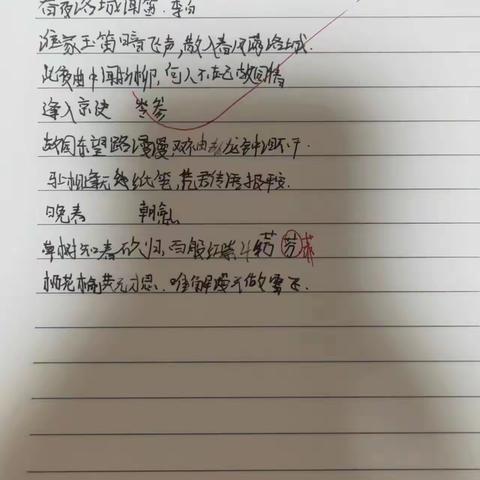 春夜洛城闻笛 李白
谁家玉笛暗飞声,散入春风满洛城.
此夜曲中闻折柳,何人不起故园情
逢入京使 岑参
故园东望路漫漫,双袖龙钟泪不干.
马上相逢无纸笔,凭君传语报平安.
晚春 韩愈
草树知春不久归,百般红紫斗芳 芬 菲
杨花榆荚无才思.唯解漫天做雪飞.